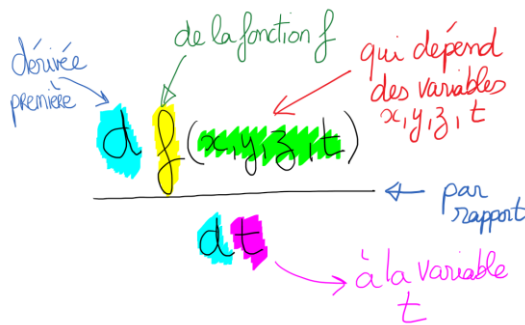 dérivée
première
de la fonction f
qui dépend
des variables
x, y, z, t
d f (x, y, z, t)
dt
par
rapport
à la variable
t